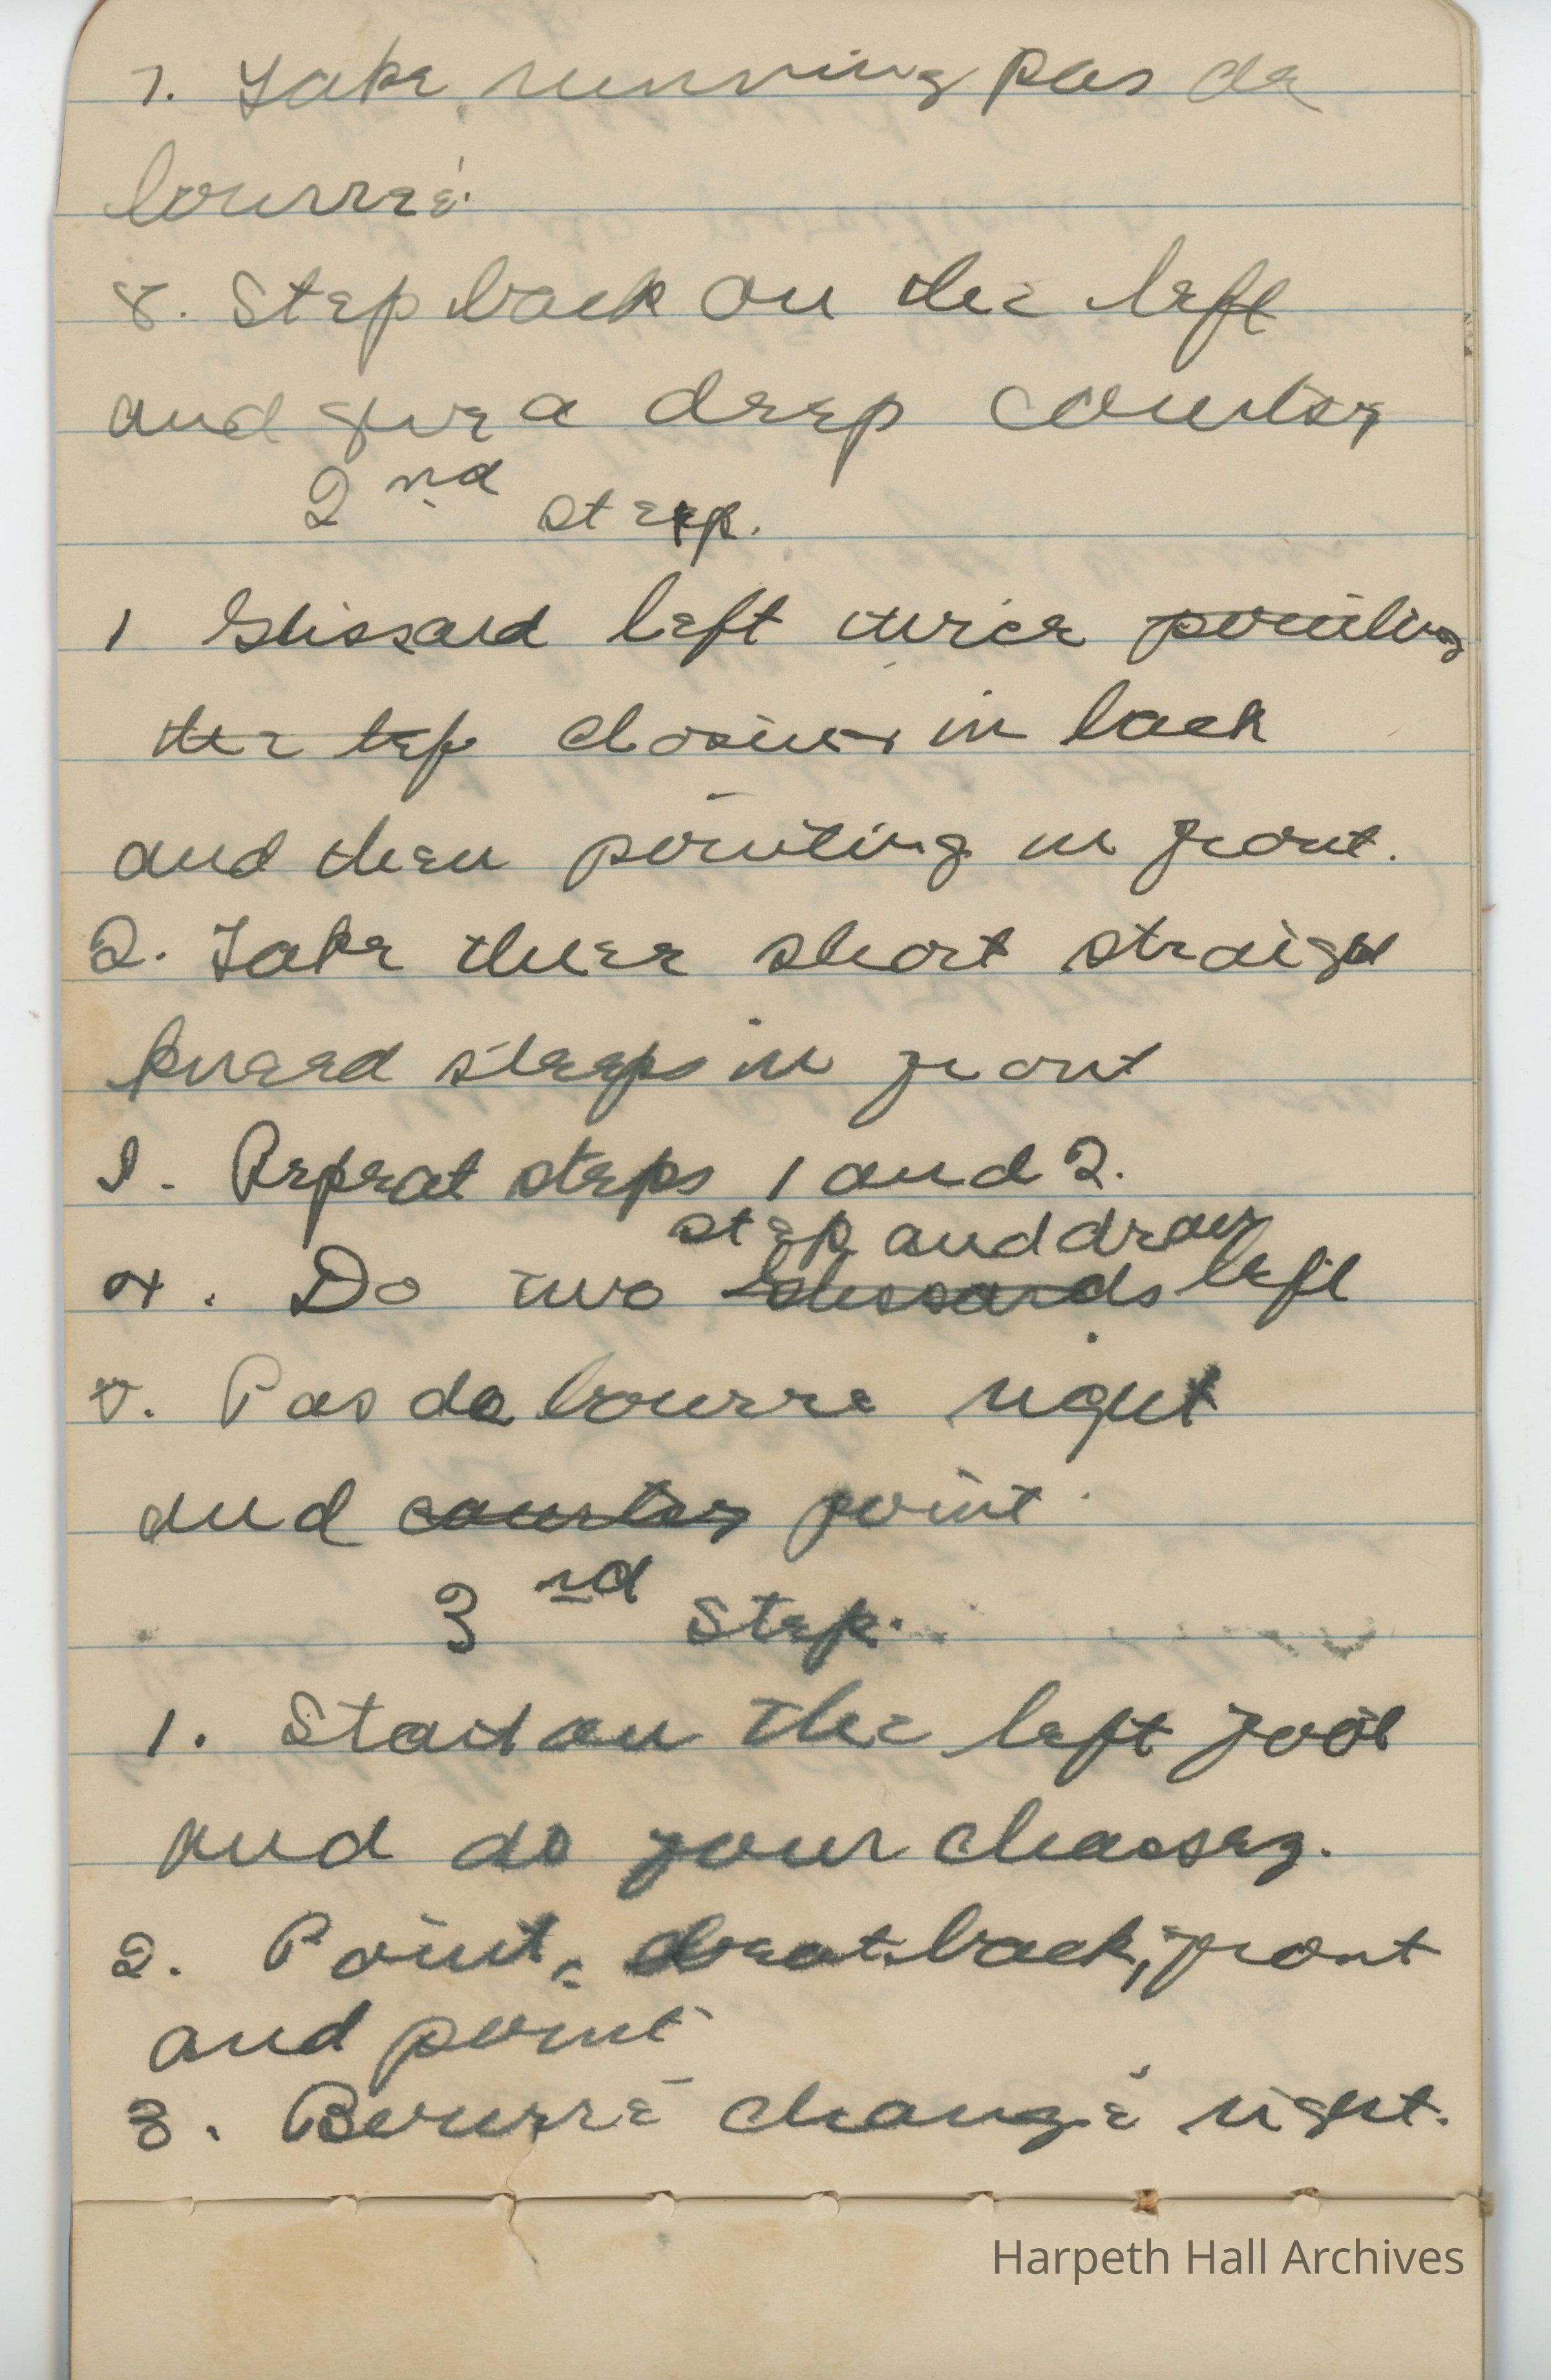 7. Take running pas de
bourreé.
8. Step back on the left
and give a deep courtsy
2nd step.
1 Glissard left twice pointing
the toe closing in back
and then pointing in front.
2. Take three short straight
kneed steps in front
3. Repeat steps 1 and 2.
step and draw
4. Do two glissards left
5. Pas de bourre right
and courtsy point.
3rd Step.
1. Start on the left foot
and do four chassey.
2. Point, beat back, front
and point
3. Bourré changé right.
Harpeth Hall Archives